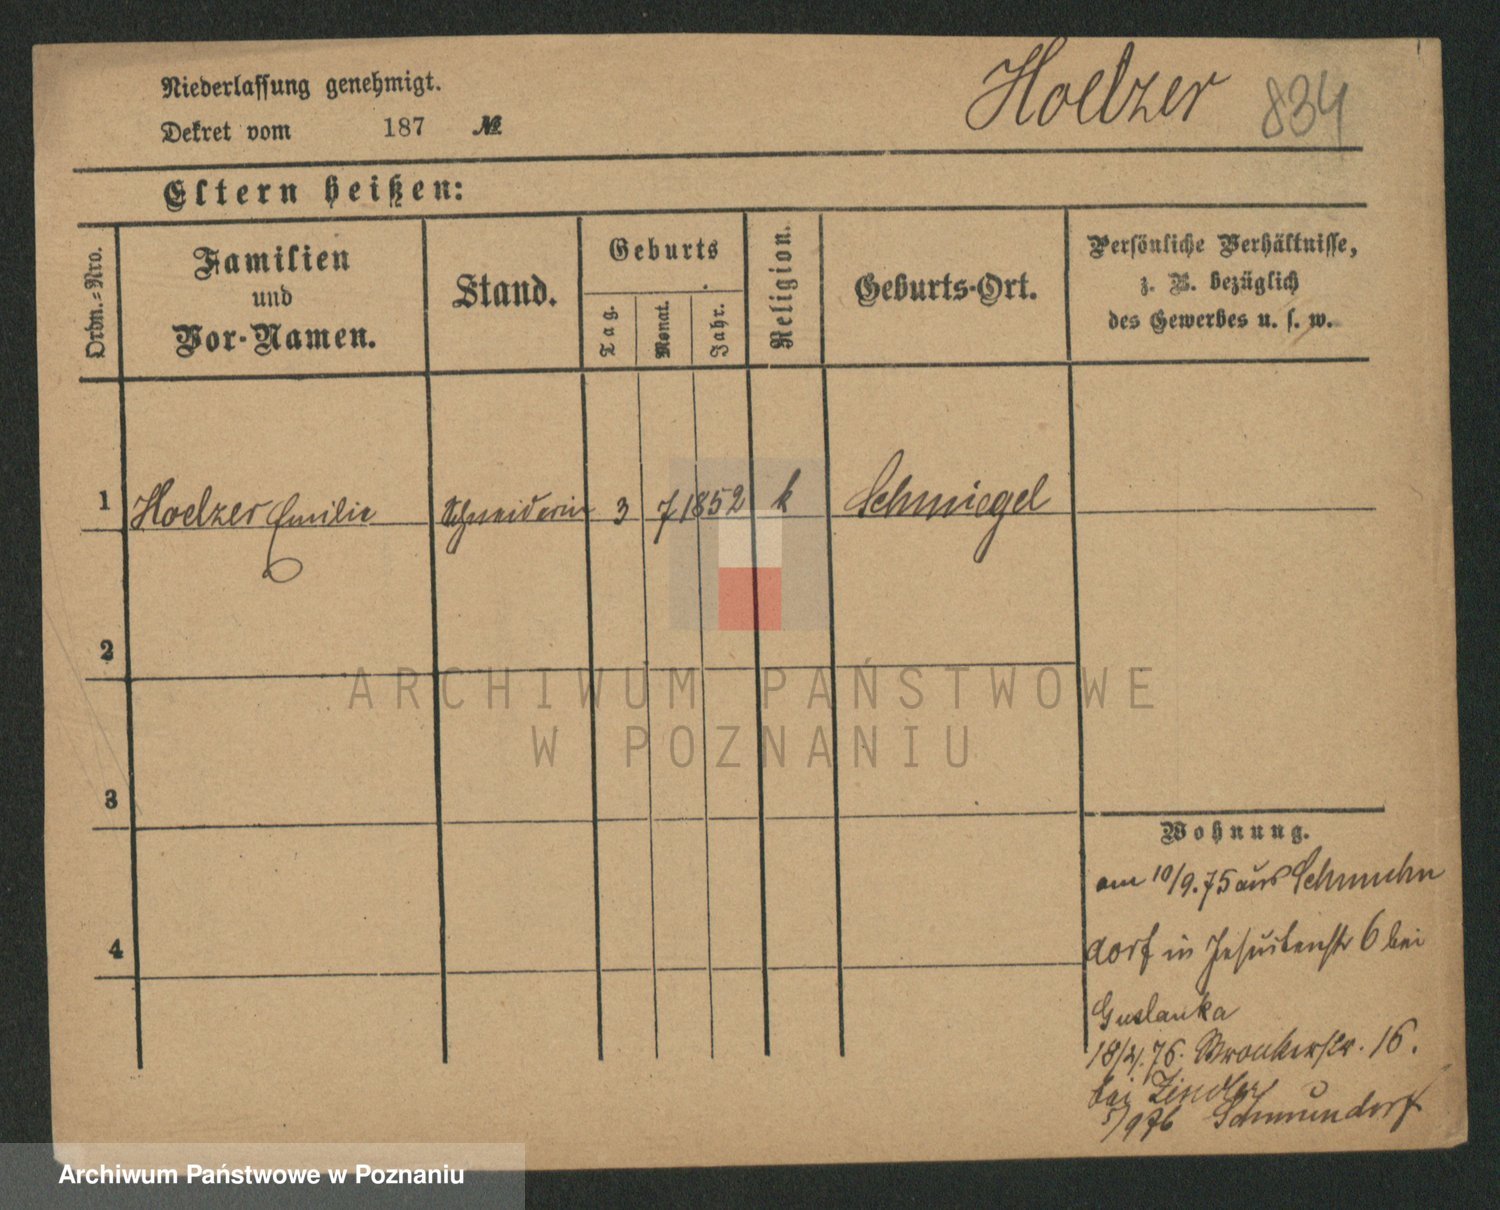 Niederlassung genehmigt.
Hoelzer 834
Dekret vom 187 №
Eltern heißen:
Ordn.-Nro.
Familien
und
Vor-Namen.
Stand.
Geburts
Tag.
Monat.
Jahr.
Religion.
Geburts-Ort.
Persönliche Verhältnisse,
z. B. bezüglich
des Gewerbes u. s. w.
1 Hoelzer Emilie Schneiderin 3 7 1852 k Schmiegel
2
ARCHIWUM PAŃSTWOWE
W POZNANIU
3
Wohnung.
am 10/9.75 aus
4
dorf in Jesuitenstr 6 bei
Guslanka
18/ 76. Wronkerstr. 16.
bei Zindler
5/9 76
Archiwum Państwowe w Poznaniu